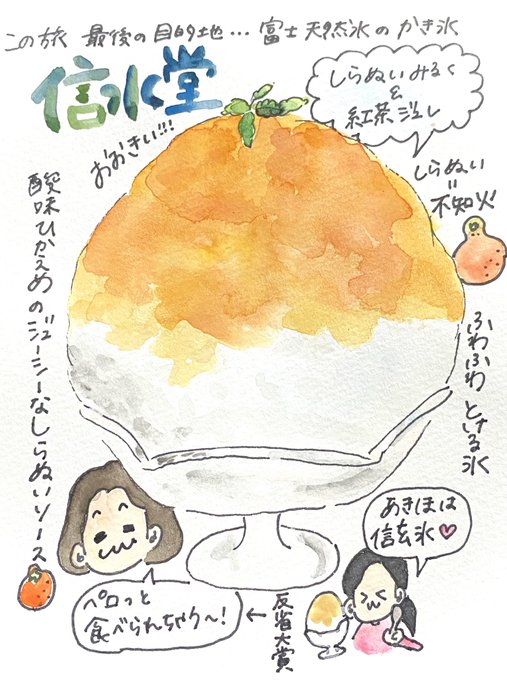 この旅 最後の目的地… 富士天然氷のかき氷
信水堂
おおきい!!!
しらぬいみるく
&
紅茶ジュレ
しらぬい
=
不知火
酸味ひかえめのジューシーなしらぬいソース
ふわふわ とける氷
あきほは
信玄氷
ペロっと
食べられちゃう〜!
←反省大賞